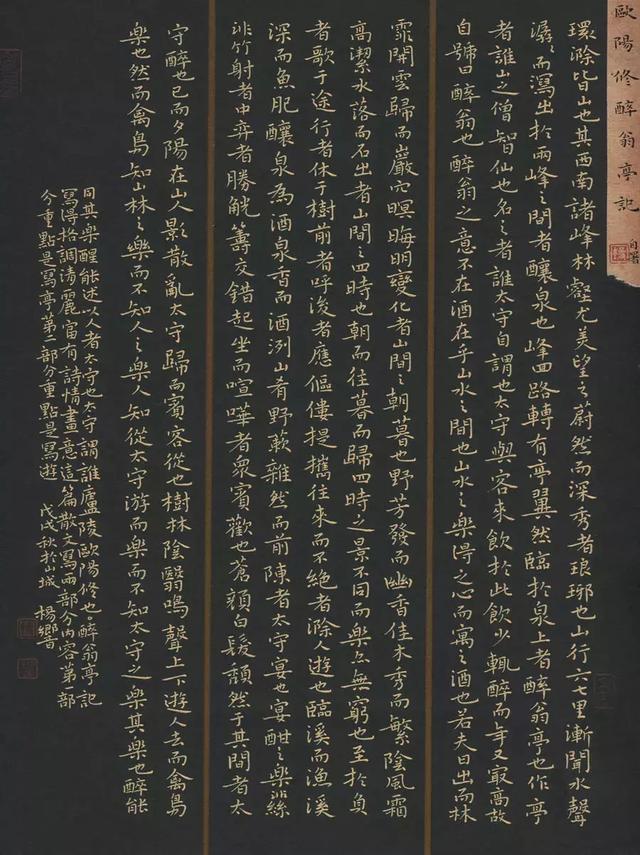 歐陽修醉翁亭記
自署
環滁皆山也其西南諸峰林壑尤美望之蔚然而深秀者琅琊也山行六七里漸聞水聲
潺〻而瀉出於兩峰之間者釀泉也峰回路轉有亭翼然臨於泉上者醉翁亭也作亭
者誰山之僧智仙也名之者誰太守自謂也太守與客來飲於此飲少輒醉而年又最高故
自號曰醉翁也醉翁之意不在酒在乎山水之間也山水之樂得之心而寓之酒也若夫日出而林
霏開雲歸而巖穴暝晦明變化者山間之朝暮也野芳發而幽香佳木秀而繁陰風霜
高潔水落而石出者山間之四時也朝而往暮而歸四時之景不同而樂亦無窮也至於負
者歌于途行者休于樹前者呼後者應傴僂提攜往來而不絕者滁人遊也臨溪而漁溪
深而魚肥釀泉為酒泉香而酒洌山肴野蔌雜然而前陳者太守宴也宴酣之樂非絲
非竹射者中弈者勝觥籌交錯起坐而喧嘩者眾賓歡也蒼顏白髮頹然于其間者太
守醉也已而夕陽在山人影散亂太守歸而賓客從也樹林陰翳鳴聲上下遊人去而禽鳥
樂也然而禽鳥知山林之樂而不知人之樂人知從太守游而樂而不知太守之樂其樂也醉能
同其樂醒能述以人者太守也太守謂誰廬陵歐陽修也。醉翁亭記
寫得格調清麗富有詩情畫意這篇散文寫兩部分內容第一部
分重點是寫亭第二部分重點是寫遊 戊戌秋於山城 楊響